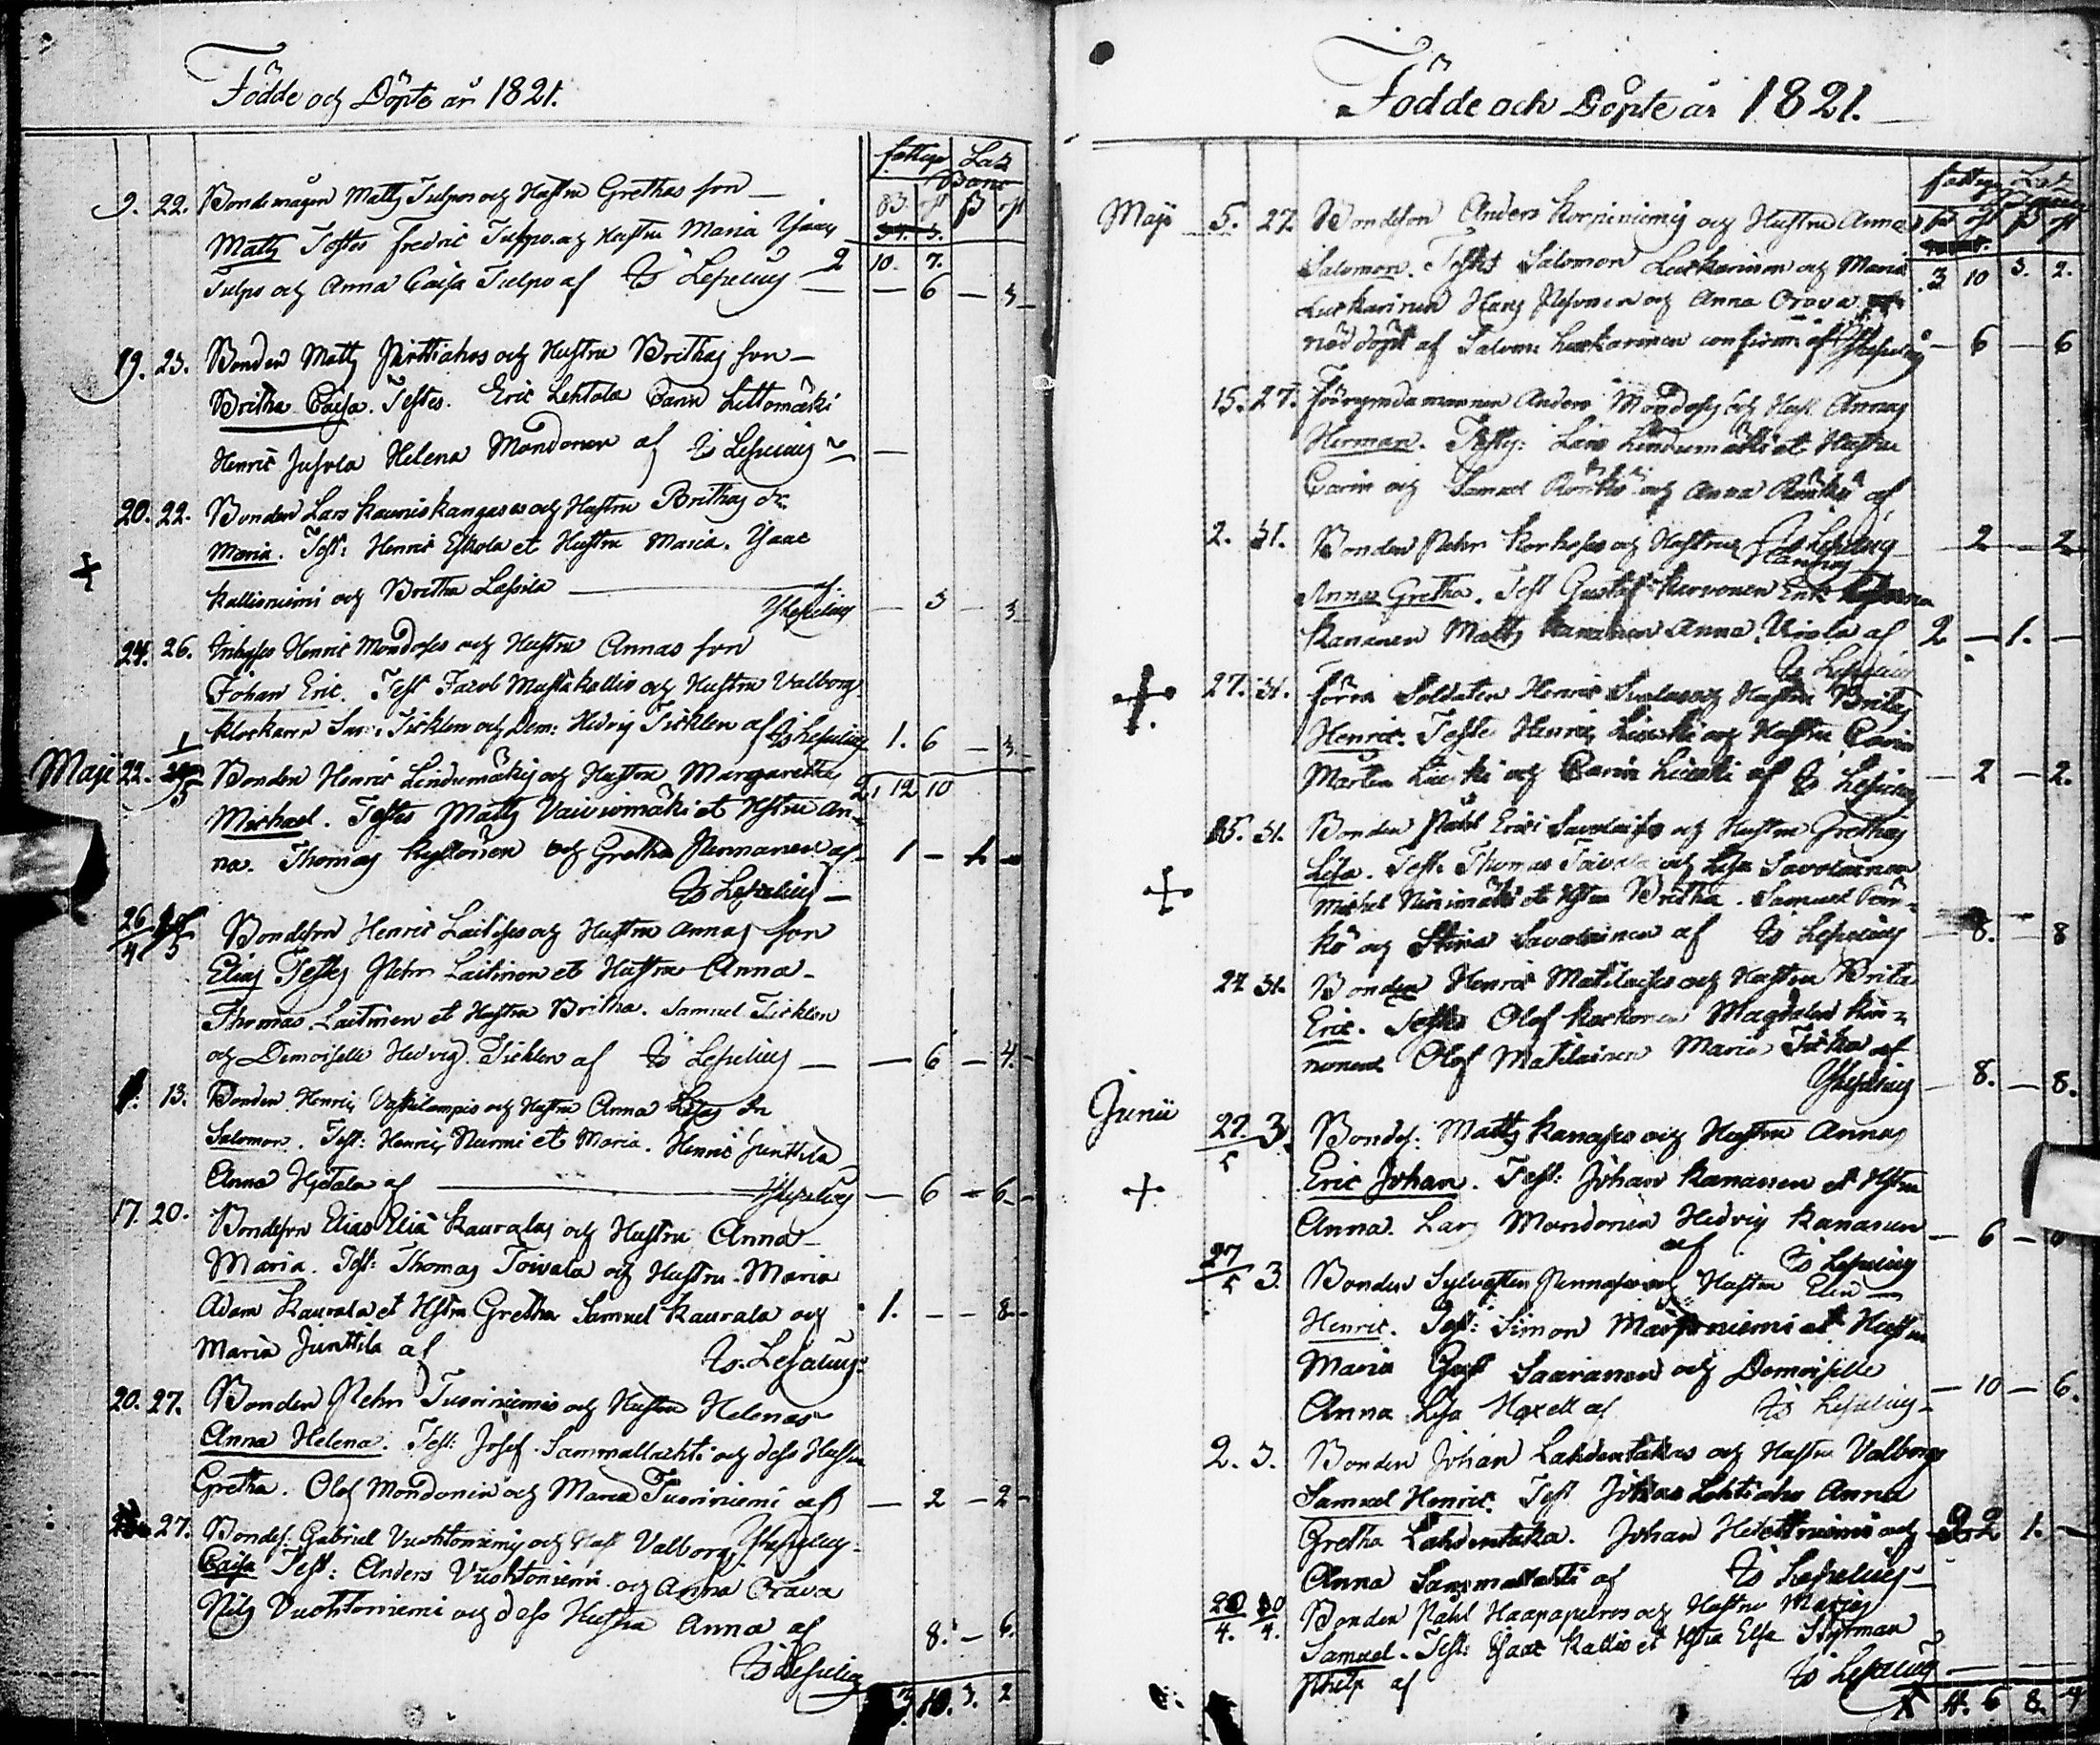 Födde och Döpte år 1821.
fattige Laz
Banc
9. 22. Bondemågen Matts Tulpos och Hustru Grethas son
Matts Testes Fredric Tulppo och Hustru Maria Isaac
Tulpo och Anna Caisa Tulpo af Is Lesselius 2 10. 7.
— 6 — 3
19. 23. Bonden Matts Pirttiahos och Hustru Brithas son
Britha Caisa. Testes. Eric Lehtola Carin Littomäki
Henric Juhola Helena Mondonen af Is Lesselius —
20. 22. Bonden Lars Kauniskangases och Hustru Brithas dr
Maria. Test: Henric Eskola et Hustru Maria. Isaac
Kallioniemi och Britha Lassila af
IsLesselius — 3 — 3
24. 26. Inhyses Henric Mondoses och Hustru Annas son
Johan Eric. Test Jacob Mustakallio och Hustru Valborg
Klockaren Sam: Ticklen och Dem: Hedvig Ticklen af Is Lesselius 1. 6 — 3
Maji 22. 1/5 Bonden Henric Lindumäkis och Hustru Margaretha 2. 12 10
Michael. Testes Matts Vaiviomäki et Hstru An-
na. Thomas Kyllönen och Gretha Pennanen af 1 — 1. —
Is Lesselius —
26/4 5 Bondeson Henric Laitises och Hustru Annas son
Elias Testes Pehr Laitinen et Hustru Anna
Thomas Laitinen et Hustru Britha. Samuel Ticklen
och Demoiselle Hedvig Ticklen af Is Lesselius — 6 — 4.
13. Bonden Henric Vaskilampis och Hustru Anna Lisas
Salomon. Test: Henric Nurmi et Maria. Henric Junttila
Anna Hietala af IsLesselius — 6 — 6
17. 20. Bondeson Elias Elia Kauralas och Hustru Anna
Maria. Test: Thomas Toivala och Hustru Maria
Adam Kaurala et Hstru Gretha Samuel Kaurala och 1. — — 8
Maria Junttila af Is. Lesselius
20. 27. Bonden Pehr Tuoriniemis och Hustru Helenas
Anna Helena. Test: Josef Sammallachti och dess Hustru
Gretha. Olof Mondonen och Maria Tuoriniemi af — 2 — 2
27. Bondes: Gabriel Vuohtoniemis och Hust Valborg IsLesselius
Caisa Test: Anders Vuohtoniemi och Anna Orava
Nils Vuohtoniemi och dess Hustru Anna af 8. — 6.
Is Lesselius
3. 10. 3. 2
Födde och Döpte år 1821.
fattige Laz
Maji 5. 27. Bondeson Anders Korpiniemis och Hustru Annas
Salomon. Testes Salomon Luskarinen och Maria 3 10 3. 2.
Luskarinen Hans Pesonen och Anna Orava
nöddöpt af Salom: Luskarinen confirm: af IsLesselius — 6 — 6
15. 27. Anders Mondoses och Hust Annas
Herman. Testes: Lars Lindumäki et Hustru
Carin och Samuel Rönkö och Anna Rönkö af
Is Lesselius — 2 — 2
2. 31. Bonden Pehr Korhoses och Hustrus
Anna Gretha. Test Gustaf Kervonen Eric
Kananen Matts Kananen Anna Virola af 2 — 1. —
Is Lesselius
27. 31. förra Soldaten Henric och Hustru Britas
Henric. Testes Henric Lieski och Hustru Carin
Marten Lieski och Carin Lieski af Is Lesselius — 2 — 2.
25. 31. Bonden Påhl Ersis och Hustru Grethas
Lisa. Test: Thomas Toivola och Lisa Savolainen
Michel Niinimäki et Hstru Britha. Samuel Pön-
kö och Stina Savolainen af Is Lesselius 8. 8
24 31. Bonden Henric Matilaises och Hustru Brita
Eric. Testes Olof Korhonen Magdalena Kin-
nunen Olof Matilainen Maria Tickka af
IsLesselius — 8. — 8.
Junii 22./5 3. Bondes: Matts Kanases och Hustru Annas
Eric Johan. Test: Johan Kananen et Hstru
Anna. Lars Mondonen Hedvig Kananen — 6 — 6
af Is Lesselius
27/5 3. Bonden Sylvester Pennases och Hustru Elin
Henric. Test: Simon Marjoniemi et Hustru
Maria Gust Saaranen och Demoiselle
Anna Lisa Hoxell af Is Lesselius — 10 — 6.
2. 3. Bonden Johan Lahdentakas och Hustru Valborgs
Samuel Henric. Test Johan Lehtiaho Anna
Gretha Lahdentaka. Johan Heteniemi och 2 1. —
Anna Sammallahti af Is Lesselius
20/4. 20/4. Bonden Påhl Haapapuros och Hustru Marias
Samuel. Test: Isaac Kallio et Hstru Elsa Styrman
af Is Lesselius
4. 6 8. 4